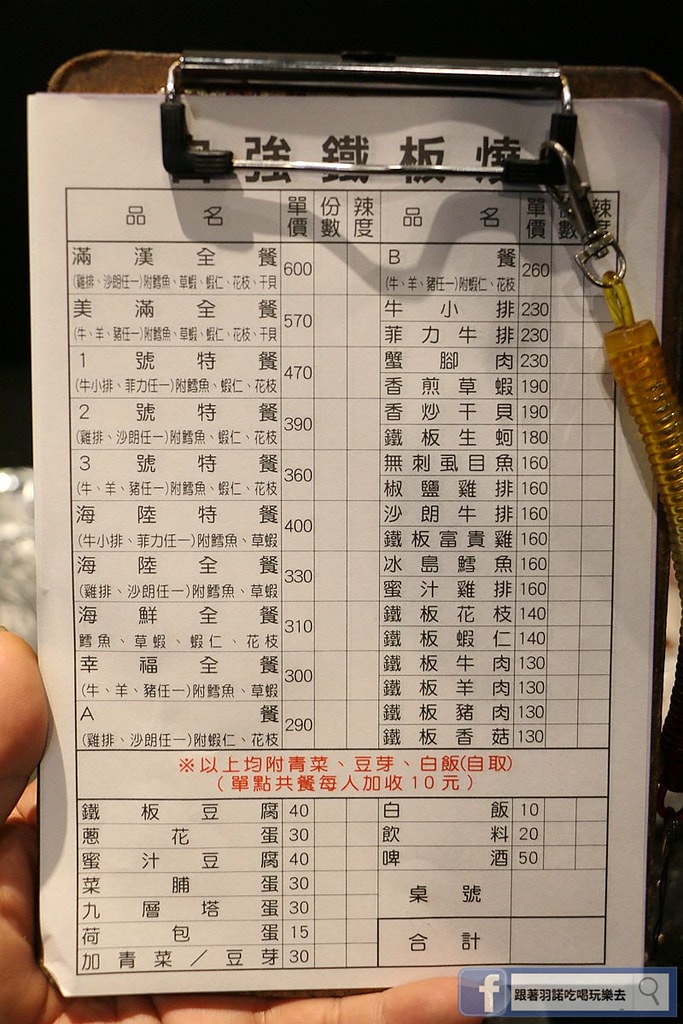 強鐵板燒
品名 單價 份數 辣度
滿漢全餐 600
(雞排、沙朗任一)附鱈魚、草蝦、蝦仁、花枝、干貝
美滿全餐 570
(牛、羊、豬任一)附鱈魚、草蝦、蝦仁、花枝、干貝
1號特餐 470
(牛小排、菲力任一)附鱈魚、蝦仁、花枝
2號特餐 390
(雞排、沙朗任一)附鱈魚、蝦仁、花枝
3號特餐 360
(牛、羊、豬任一)附鱈魚、蝦仁、花枝
海陸特餐 400
(牛小排、菲力任一)附鱈魚、草蝦
海陸全餐 330
(雞排、沙朗任一)附鱈魚、草蝦
海鮮全餐 310
鱈魚、草蝦、蝦仁、花枝
幸福全餐 300
(牛、羊、豬任一)附鱈魚、草蝦
A餐 290
(雞排、沙朗任一)附蝦仁、花枝
品名 單價 數 辣度
B餐 260
(牛、羊、豬任一)附蝦仁、花枝
牛小排 230
菲力牛排 230
蟹腳肉 230
香煎草蝦 190
香炒干貝 190
鐵板生蚵 180
無刺虱目魚 160
椒鹽雞排 160
沙朗牛排 160
鐵板富貴雞 160
冰島鱈魚 160
蜜汁雞排 160
鐵板花枝 140
鐵板蝦仁 140
鐵板牛肉 130
鐵板羊肉 130
鐵板豬肉 130
鐵板香菇 130
※以上均附青菜、豆芽、白飯(自取)
(單點共餐每人加收10元)
鐵板豆腐 40
蔥花蛋 30
蜜汁豆腐 40
菜脯蛋 30
九層塔蛋 30
荷包蛋 15
加青菜／豆芽 30
白飯 10
飲料 20
啤酒 50
桌號
合計
f 跟著羽諾吃喝玩樂去